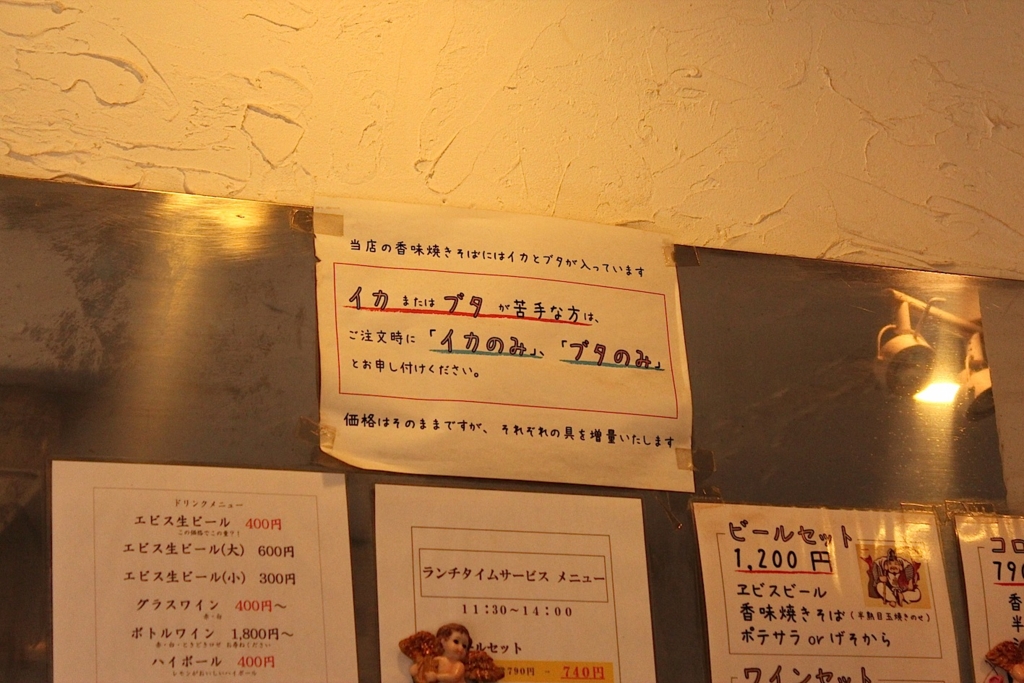 当店の香味焼きそばにはイカとブタが入っています
イカ または ブタ が苦手な方は、
ご注文時に「イカのみ」、「ブタのみ」
とお申し付けください。
価格はそのままですが、それぞれの具を増量いたします
ドリンクメニュー
エビス生ビール 400円
この価格でこの量？！
エビス生ビール(大) 600円
エビス生ビール(小) 300円
グラスワイン 400円～
赤・白
ボトルワイン 1,800円～
ハイボール 400円
レモンがおいしいハイボール
ランチタイムサービス メニュー
11:30～14:00
ルセット
790円 → 740円
ビールセット
1,200円
ヱビスビール
香味焼きそば(半熟目玉焼きのせ)
ポテサラ or げそから
ワインセット
コロ
790
香
半